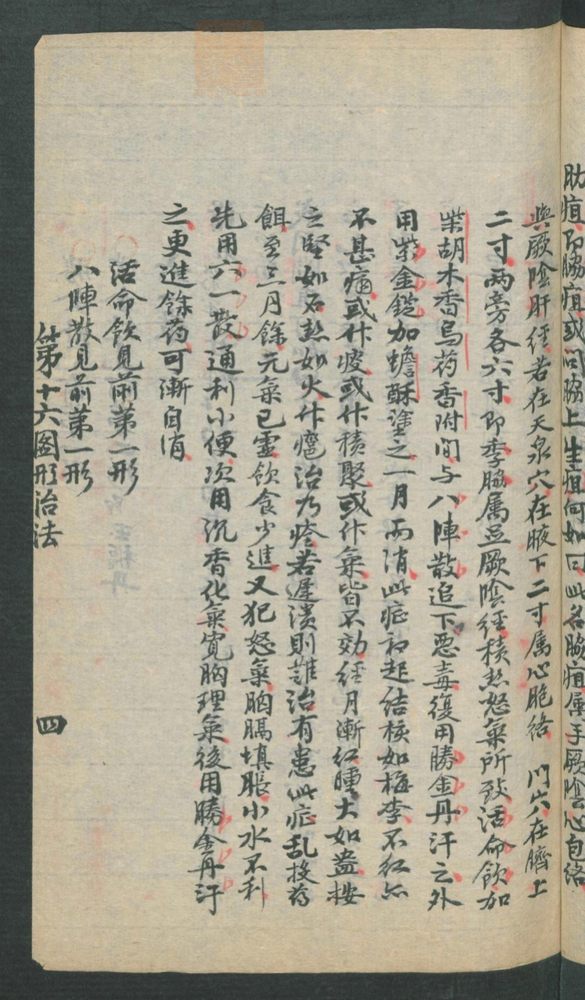 肋疽 或問脇上生疽何如曰此名脇疽屬手厥陰心包絡
與厥陰肝經若在天泉穴在腋下二寸属心胞絡 门穴在臍上
二寸两旁各六寸即季脇属足厥陰經積热怒氣所致活命飲加
柴胡木香烏药香附间与八陣散追下惡毒復用勝金丹汗之外
用紫金錠加蟾酥塗之一月而消此症初起结核如梅李不红亦
不甚痛或作疲或作積聚或作氣皆不効经月漸红腫大如盎按
之堅如石热如火作膿治乃痊若遲溃則難治有患此症乱投药
餌至三月餘元氣已虚飲食少進又犯怒氣胸膈填脹小水不利
先用六一散通利小便次用沉香化氣寛胸理氣後用勝金丹汗
之更進餘药可漸自消
活命飲見前第一形
八陣散見前第一形
第十六圖形治法
四